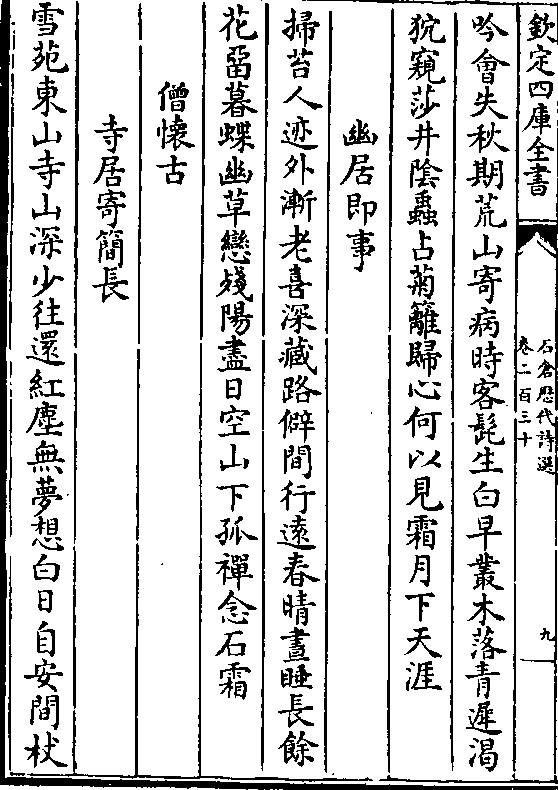 欽定四庫全書
石倉歷代詩選
卷二百三十
九
吟會失秋期荒山寄病時客髭生白早叢木落青遲渇
狖窺莎井陰蟲占菊籬歸心何以見霜月下天涯
幽居即事
掃苔人迹外漸老喜深藏路僻間行逺春晴晝睡長餘
花留暮蝶幽草戀殘陽盡日空山下孤禪念石霜
僧懷古
寺居寄簡長
雪苑東山寺山深少往還紅塵無夢想白日自安間杖